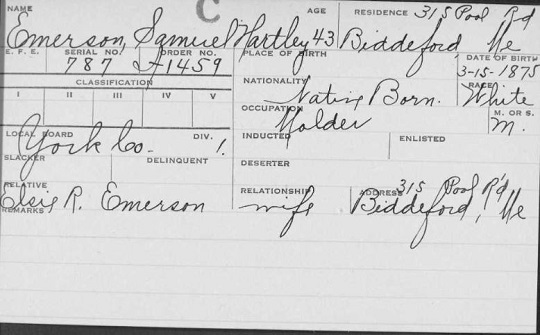 C
NAME AGE RESIDENCE 315 Pool Rd
Emerson, Samuel Hartley 43 Biddeford, Me
E. F. E. SERIAL NO. ORDER NO. PLACE OF BIRTH DATE OF BIRTH
787 A-1459 3-15-1875
CLASSIFICATION NATIONALITY RACE
I II III IV V Native Born. White
OCCUPATION M. OR S.
Molder M.
LOCAL BOARD DIV. INDUCTED ENLISTED
York Co. 1.
SLACKER DELINQUENT DESERTER
RELATIVE RELATIONSHIP ADDRESS 315 Pool R'd
Elsie R. Emerson wife Biddeford, Me
REMARKS